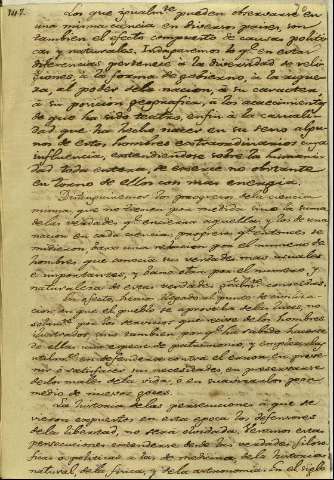 147.
Los que igualmte pueden observarse en
una misma ciencia en diversos paises, son
tambien el efecto compuesto de causas politi
cas y naturales. Indagaremos lo qe en estas
diferencias pertenece à la diversidad de reli
giones, à la forma de gobierno, à la rique
za, al poder de la nacion, à su caracter,
à su posicion geografica, à los acaecimientos
de que ha sido teatro, enfin à la casuali
dad que ha hecho nacer en su seno algu
nos de estos hombres extraordinarios cuya
influencia, extendiendose sobre la humani
dad toda entera, se exerce no obstante
en torno de ellos con mas energia.
Distinguiremos los progresos de la ciencia
misma, que no tienen por medida sino la suma
de las verdades qe encierra, aquellos y los de una
nacion en cada ciencia, progresos qe entonces se
mediran, baxo una relacion por el numero de
hombres, que conocia sus verdades mas usuales
è importantes, y baxo otra por el numero y
naturaleza de estas verdades conocidas.
En efecto, hemos llegado al punto de civiliza
cion, en que el pueblo se aprovecha de las luces, no
solamte por los servicios que recibe de los hombres
ilustrados, sino tambien por qe ha sabido hacerse
de ellas una especie de patrimonio, y emplearlas
en defenderse contra el error, en preve
nir ó satisfacer sus necesidades, en preservarse
de los males de la vida, ó en suavizarlos por
medio de nuevos goces.
La historia de las persecuciones à que se
vieron expuestos en esta epoca los defensores
de la libertad, no sera olvidada. Veremos estas
persecuciones extenderse desde las verdades filoso
ficas ó politicas à las de medicina, de la historia
natural, de la fisica, y de la astronomia. En el siglo